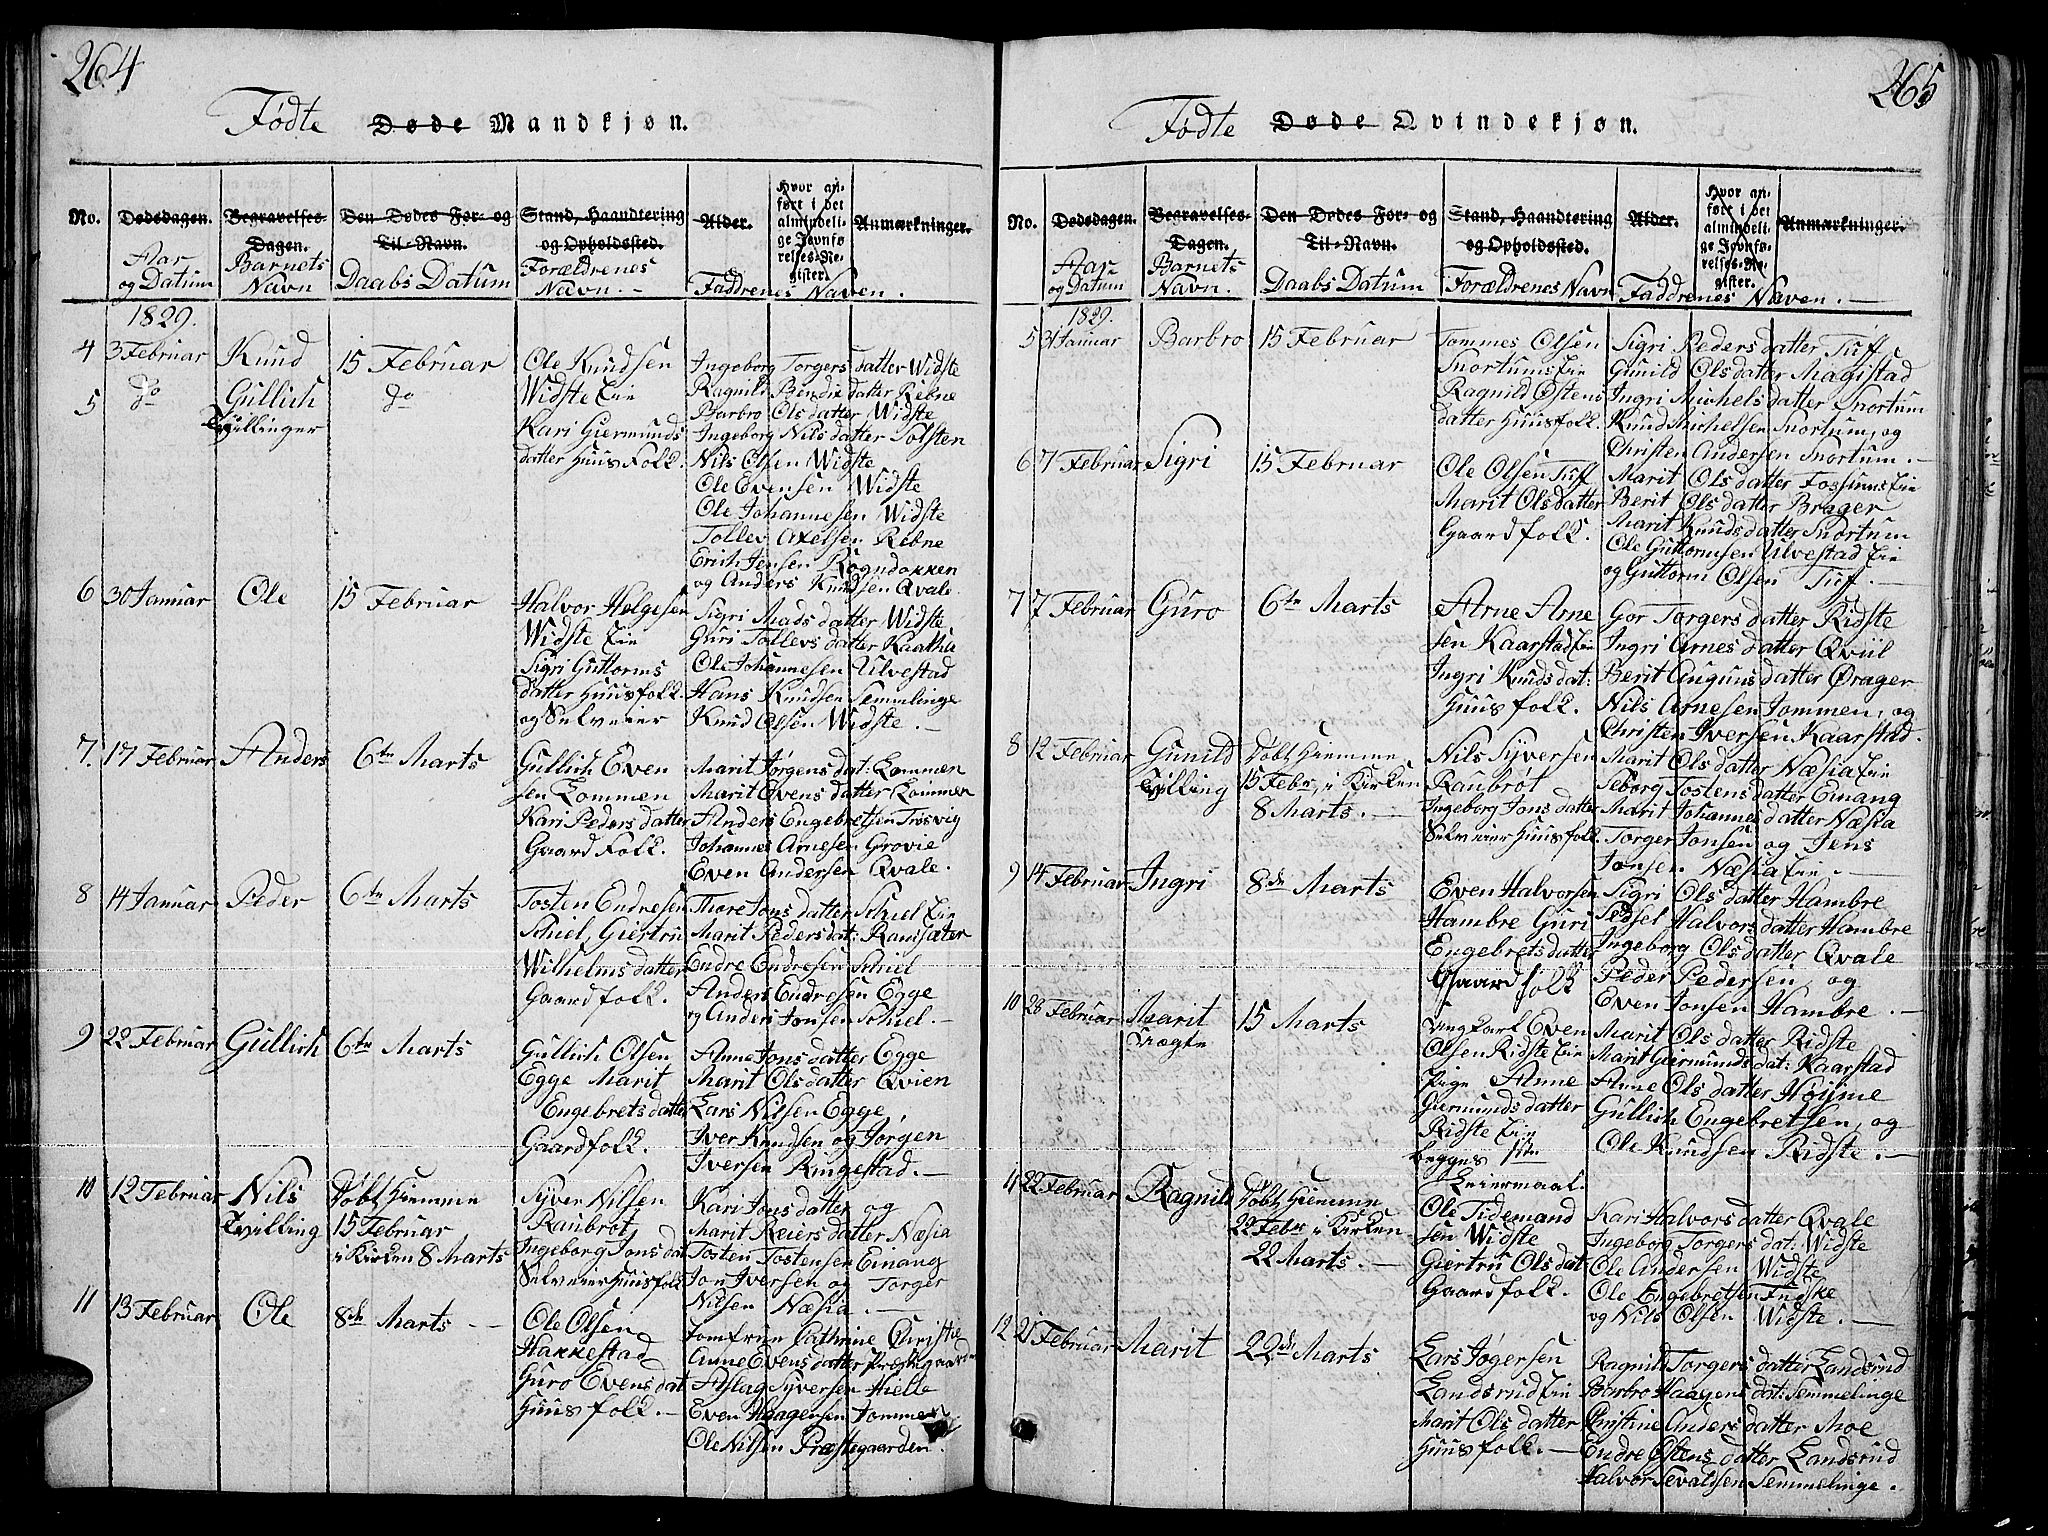 264
Fødte Døde Mandkjøn.
No. Dødsdagen. Begravelses-Dagen. Den Dødes For- og Til-Navn. Stand, Haandtering og Opholdssted. Alder. Hvor anført i det almindelige Jevnførelses-Register. Anmærkninger.
Aar og Datum Barnets Navn Daabs Datum Forældrenes Navn. Faddrenes Naven.
1829.
4 3 Februar Knud 15 Februar Ole Knudsen
Widste Eie
Kari Giermunds
datter Huusfolk.
Ingeborg Torgers datter Widste
Ragnild Bendic datter Rebne
Barbro Ols datter Widste
Ingeborg Nils datter Solsten
Nils Olsen Widste
Ole Evensen Widste
Ole Johannesen Widste
Tollev Axelsen Rebne
Erich Jensen Rogndokken
og Anders Knudsen Qvale.
5 do Gullich do
Tvillinger
6 30 Januar Ole 15 Februar Halvor Helgesen
Widste Eie
Sigri Guttorms
datter Huusfolk
og Selveier
Sigri Mads datter Widste
Guri Tollevs datter Kaatha
Ole Johannesen Ulvestad
Hans Knudsen Semmelinge
Knud Olsen Widste.
7. 17 Februar Anders 6te Marts Gullich Even
sen Lommen
Kari Peders datter
Gaardfolk.
Marit Jørgens dat: Lommen
Marit Evens datter Lommen
Anders Engebretsen Trosvig
Johannes Arnesen Grovie
Even Andersen Qvale.
8 14 Januar Peder 6te Marts Tosten Endresen
Schiel, Giertru
Wilhelms datter
Gaardfolk.
Thore Jons datter Schiel Eie
Marit Peders dat: Ramsæter
Endre Endresen Schiel
Anders Endresen Egge
og Anders Jonsen Schiel.
9 22 Februar Gullich 6te Marts Gullich Olsen
Egge Marit
Engebrets datter
Gaardfolk.
Anne Jons datter Egge
Marit Ols datter Qvien
Lars Nilsen Egge,
Iver Knudsen og Jørgen
Iversen Ringestad.
10 12 Februar Nils
Tvilling
Døbt Hiemme
15 Februar
i Kirken 8 Marts
Syver Nilsen
Raubrøt
Ingeborg Jons dat
Selveier Huusfolk
Kari Jons datter og
Marit Reiers datter Næsia
Tosten Tostensen Einang
Jon Iversen og Torger
Nilsen Næsia.
11 13 Februar Ole 8de Marts Ole Olsen
Hakkestad
Guro Evens dat
Huusfolk.
Jomfrue Cathrine Christie
Anne Evens datter Præstegaarden
Aslag Syversen Hielle
Even Haagensen Jommen
Ole Nilsen Præstegaarden.
265
Fødte Døde Qvindekjøn.
No. Dødsdagen. Begravelses-Dagen. Den Dødes For- og Til-Navn. Stand, Haandtering og Opholdssted. Alder. Hvor anført i det almindelige Jevnførelses-Register. Anmærkninger.
Aar og Datum Barnets Navn. Daabs Datum Forældrenes Navn Faddrenes Naven.
1829.
5 31 Januar Barbro 15 Februar Tommes Olsen
Snortums Eie
Ragnild Østens
datter Huusfolk.
Sigri Peders datter Tuff
Gunild Ols datter Magistad
Ingri Michels datter Snortum
Knud Michelsen Snortum, og
Christen Andersen Snortum.
6 7 Februar Sigri 15 Februar Ole Olsen Tuff
Marit Ols datter
Gaardfolk.
Marit Ols datter Fossums Eie
Berit Ols datter Brager
Marit Knuds datter Snortum
Ole Guttormsen Ulvestad Eie
og Guttorm Olsen Tuf.
7 7 Februar Guro 6te Marts Arne Arne
sen Kaarstad Eie
Ingri Knuds dat:
Huusfolk.
Gor Torgers datter Ridste
Ingri Arnes datter Qviil
Berit Auguns datter Ørager
Nils Arnesen Jommen, og
Christen Iversen Kaarstad.
8 12 Februar Gunild
Tvilling
Døbt Hiemme
15 Febr, i Kirken
8 Marts.
Nils Syversen
Raubrøt
Ingeborg Jons datter
Selveier Huusfolk
Marit Ols datter Næsia Eie
Seborg Tostens datter Einang
Marit Johannes datter Næsia
Torger Jonsen og Jens
Jonsen Næsia Eie.
9 14 Februar Ingri 8de Marts Even Halvorsen
Hambre Guri
Engebrets datter
Gaardfolk
Sigri Ols datter Hambre
Sedsel Halvors datter Hambre
Ingeborg Ols datter Qvale
Peder Pedersen, og
Even Jonsen Hambre.
10 28 Februar Marit
Uægte
15 Marts Ungkarl Even
Olsen Ridste Eie
Pige Anne
Giermunds datter
Ridste Eie
begges 1ste
Leiermaal.
Marit Ols datter Ridste
Marit Giermunds dat: Kaarstad
Anne Ols datter Høyme
Gullich Engebretsen, og
Ole Knudsen Ridste.
11 22 Februar Ragnild Døbt Hiemme
22 Febr i Kirken
22 Marts.
Ole Tidemand
sen Widste
Giertru Ols dat
Gaardfolk.
Kari Halvors datter Qvale
Ingeborg Torgers dat: Widste
Ole Andersen Widste
Ole Engebretsen Fuske
og Nils Olsen Widste.
12 21 Februar Marit 22de Marts Lars Jøgersen
Landsrud Eie
Marit Ols datter
Huusfolk.
Ragnild Torgers datter Landsrud
Barbro Haagens dat: Semmelinge
Christine Anders datter Moe
Endre Østens datter Landsrud
Halvor Sevaldsen Semmelinge.